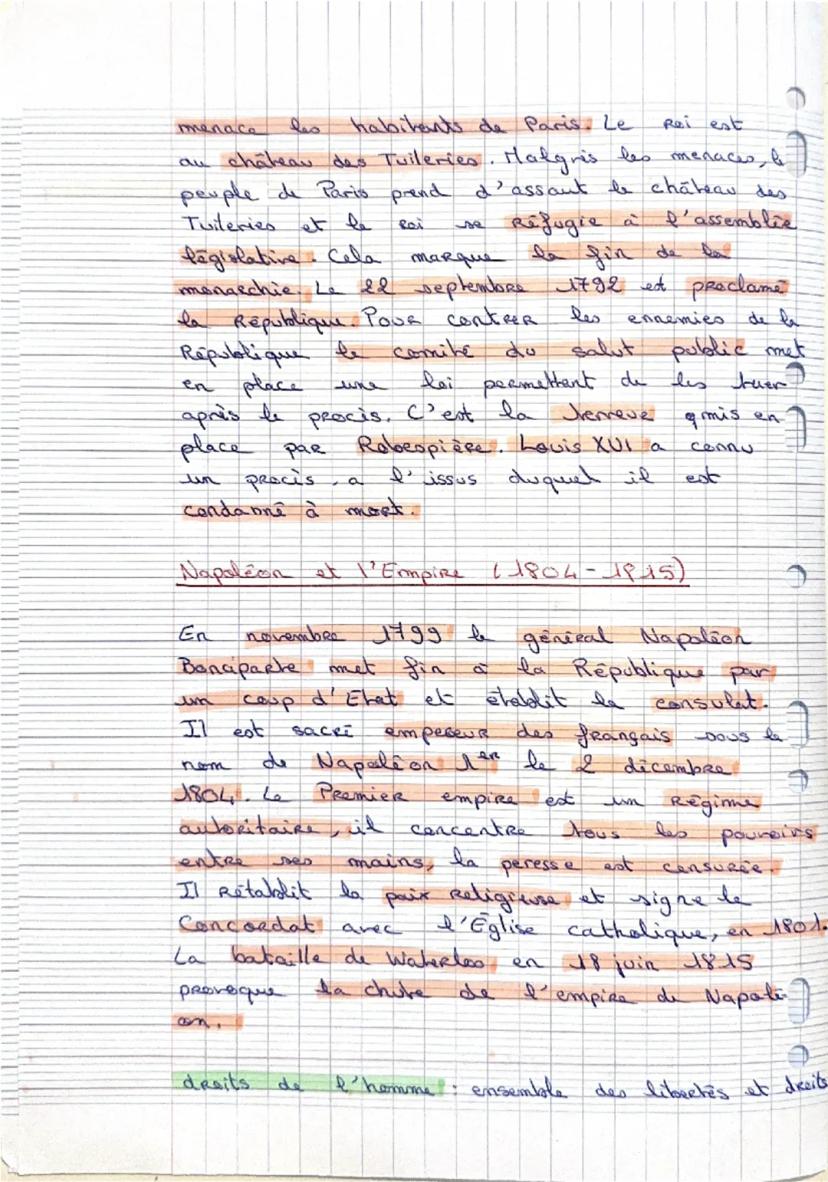 menace les habitants de Paris. Le Roi est
au château des Tuileries. Malgrés les menaces, le
peuple de Paris prend d'assaut le château des
Tuileries et le roi se Réfugie à l'assemblée
législative. Cela marque la fin de la
monarchie. Le 22 septembre 1792 est proclamé
la République. Pour contrer les ennemies de la
République le comité du salut public met
en place une loi permettant de les tuer
après le procès. C'est la Terreur qmis en
place par Robespière. Louis XVI a connu
un procès, a l'issus duquel il est
condamné à mort.
Napoléon et l'Empire (1804-1815)
En novembre 1799 le général Napoléon
Bonaparte met fin à la République par
un coup d'Etat et établit le consulat.
Il est sacré empereur des français sous le
nom de Napoléon 1er le 2 décembre
1804. Le Premier empire est un Régime
autoritaire, il concentre tous les pouvoirs
entre ses mains, la peresse est censurée.
Il Rétablit la paix Religieuse et signe le
Concordat avec l'Église catholique, en 1801.
La bataille de Waterloo en 18 juin 1815
provoque la chute de l'empire de Napolé
on.
droits de l'homme : ensemble des libertés et droits